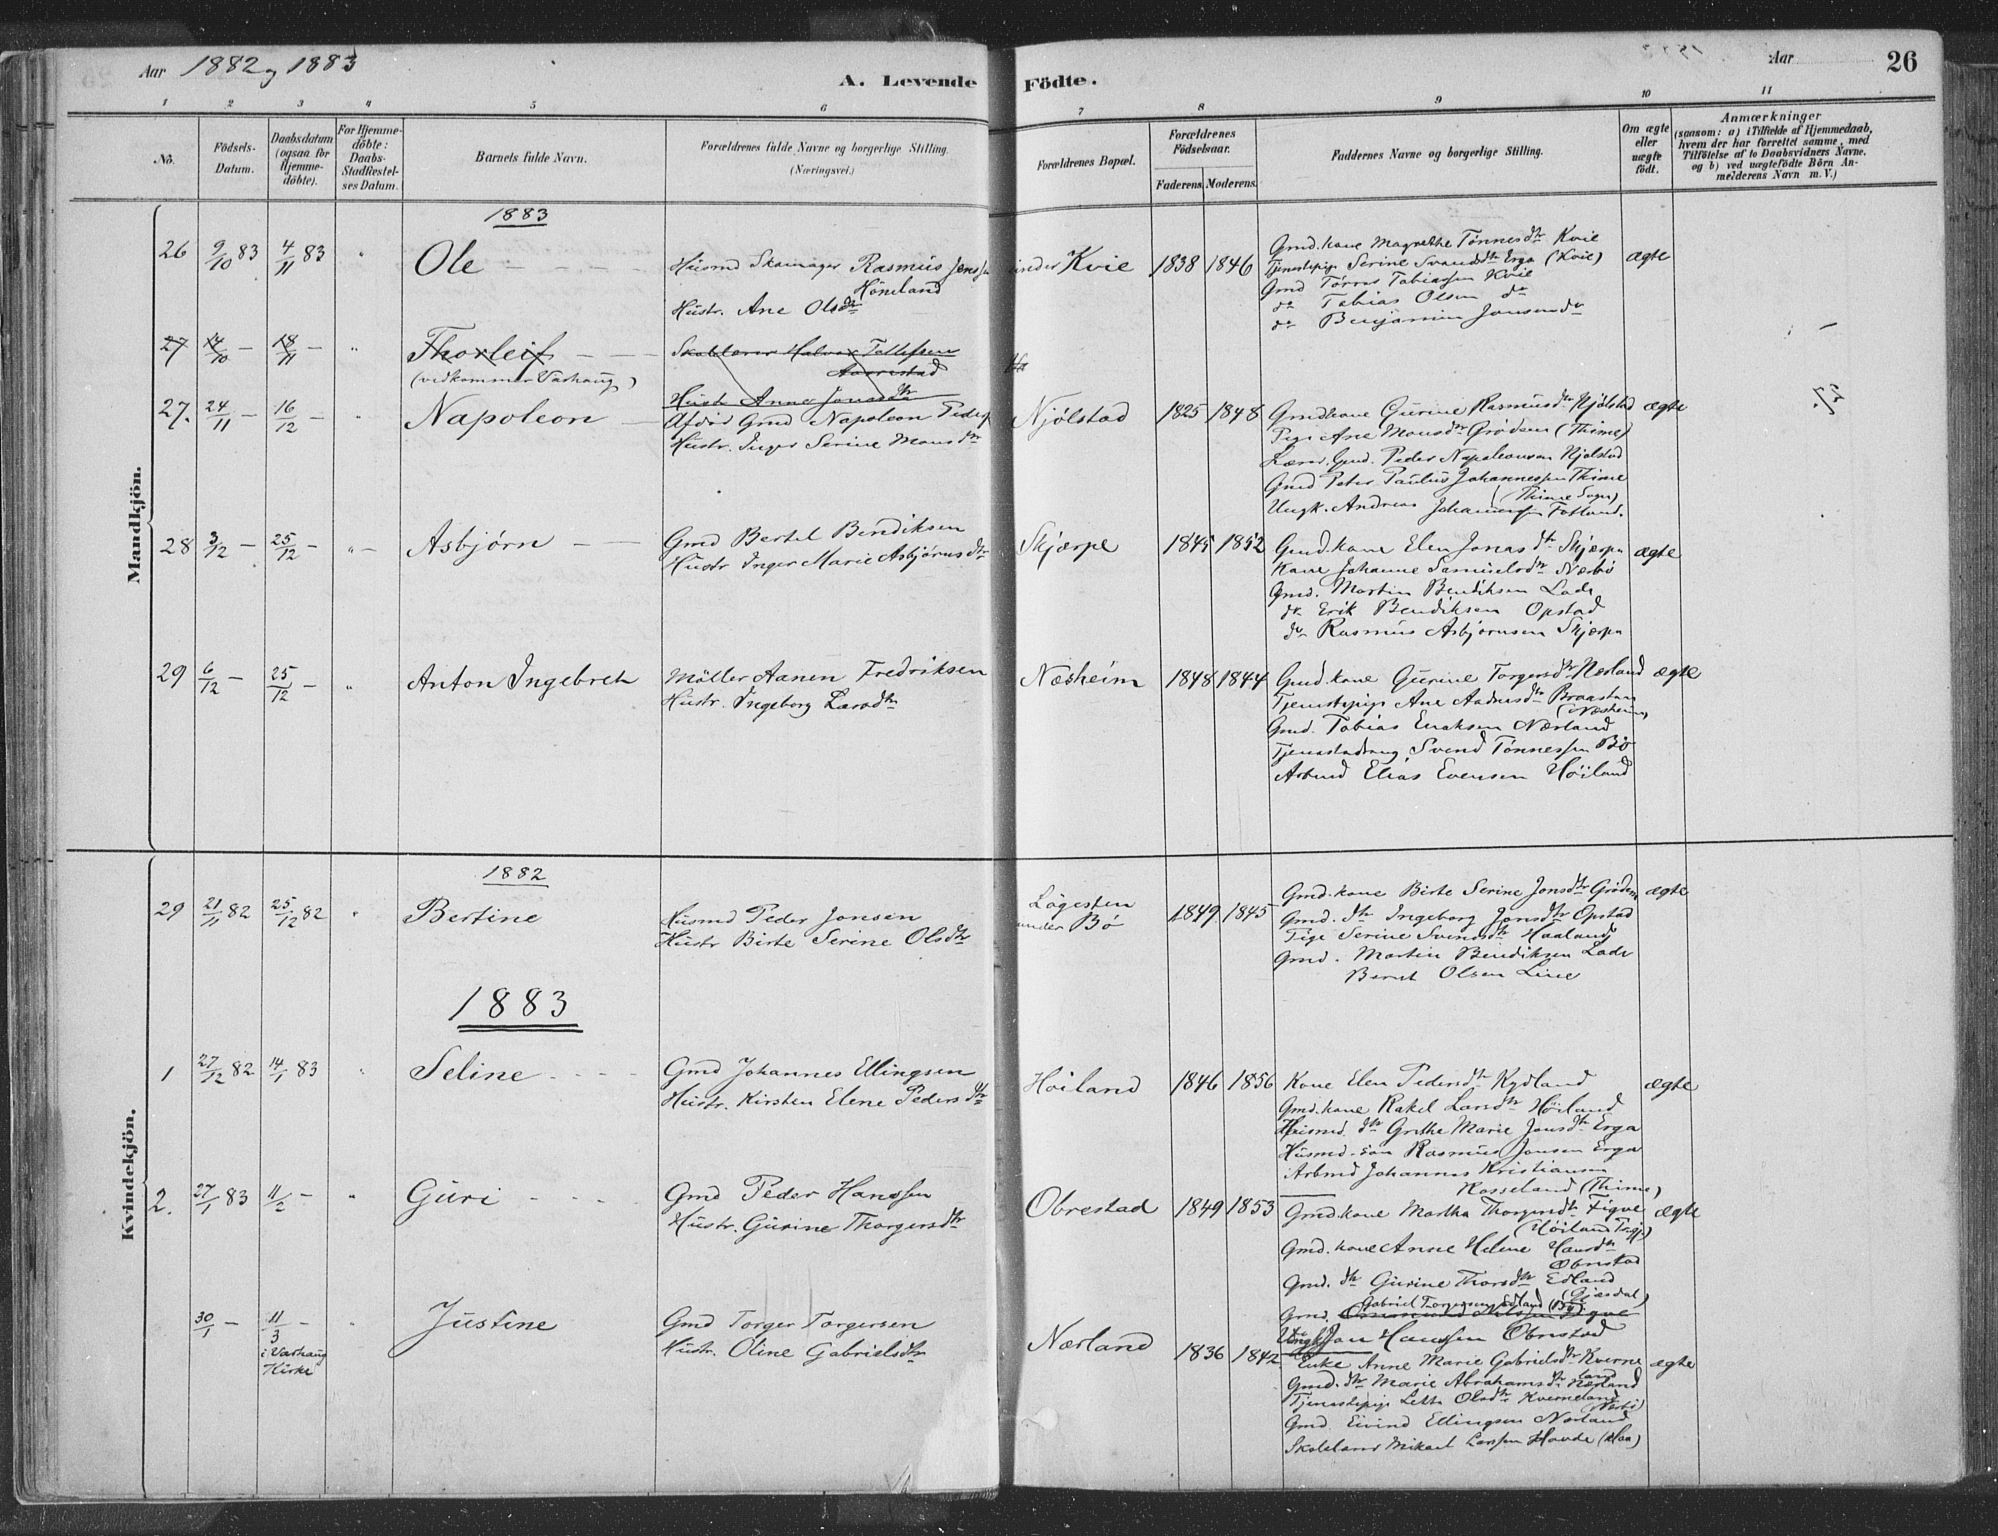 Aar 1882 og 1883
A. Levende Födte.
Aar
26
1 2 3 4 5 6 7 8 9 10 11
No.
Födsels-Datum.
Daabsdatum (ogsaa for Hjemmedöbte).
For Hjemmedöbte: Daabs-Stadfæstelses Datum.
Barnets fulde Navn.
Forældrenes fulde Navne og borgerlige Stilling.
(Næringsvei.)
Forældrenes Bopæl.
Forældrenes Födselsaar.
Faderens. Moderens.
Faddernes Navne og borgerlige Stilling.
Om ægte eller uægte födt.
Anmærkninger
(saasom: a) i Tilfælde af Hjemmedaab, hvem der har forrettet samme, med Tilföielse af to Daabsvidners Navne. og b) ved uægtefödte Börn Anmelderens Navn m. V.)
Mandkjön.
1883
26 9/10 83 4/11 83 " Ole
Husmd Skomager Rasmus Jenssen
Höneland
Hustr. Ane Olsdtr
under Kvie 1838 1846
Gmd.kone Magrethe Tønnesdtr Kvie
Tjenestepige Serine Svendsdtr Erga (Kvie)
Gmd Tørres Tobiassen Kvie
do Tobias Olsen do
do Benjamin Jonsen do
ægte
27 14/10 - 18/11 - " Thorleif
(vedkommer Varhaug)
Skolelærer Halvor Tollefsen
Aarrestad
Hustr Anne Jonsdtr
27. 24/11 - 16/12 - " Napoleon
Afdød Gmd Napoleon Peders
Hustr. Inger Serine Monsdtr
Njølstad 1825 1848
Gmdkone Gurine Rasmusdtr Njølstad
Pige Ane Monsdtr Grødem (Thime)
Lærer. Gmd. Peder Napoleonsen Njølstad
Gmd Peter Paulus Johannessen Thime
(Thime Sogn)
Ungk. Andreas Johannessen Fotland.
ægte
28 3/12 - 25/12 - " Asbjørn
Gmd Bertel Bendiksen
Hustr Inger Marie Asbjørnsdtr
Skjærpe 1845 1852
Gmd.kone Elen Jonasdtr Skjærpe
Kone Johanne Samuelsdtr Nærbø
Gmd. Martin Bendiksen Lade
do Erik Bendiksen Opstad
do Rasmus Asbjørnsen Skjærpe
ægte
29 6/12 - 25/12 - " Anton Ingebret
Möller Aanen Fredriksen
Hustr. Ingeborg Larsdtr
Næsheim 1848 1844
Gmd.kone Gurine Torgersdtr Nærland
Tjenestepige Ane Aadnesdtr Braastein
(Næsheim)
Gmd. Tobias Eriksen Nærland
Tjenestedreng Svend Tønnessen Bø
Arbmd Elias Evensen Høiland
ægte
Kvindekjön.
1882
29 21/11 82 25/12 82 " Bertine
Husmd Peder Jonsen
Hustr Birte Serine Olsdtr
Lögesten
under Bø 1849 1845
Gmd.kone Birte Serine Jonsdtr Grødem
Gmd. dtr Ingeborg Jonsdtr Opstad
Pige Serine Svendsdtr Haaland
Gmd. Martin Bendiksen Lade
Bernt Olsen Line
ægte
1883
1 27/12 82 14/1 83 " Seline
Gmd Johannes Ellingsen
Hustr. Kirsten Elene Pedersdtr
Høiland 1846 1856
Kone Elen Pedersdtr Rydland
Gmd.kone Rakel Larsdtr Høiland
Husmd. dtr Grethe Marie Jonsdtr Erga
Husmd. søn Rasmus Jonsen Erga
Arbmd Johannes Kristiansen
Rosseland (Thime)
ægte
2. 27/1 83 11/2 - " Guri
Gmd Peder Hanssen
Hustr. Gurine Thorgersdtr
Obrestad 1849 1853
Gmd.kone Martha Thorgersdtr Figve
Gmd.kone Anne Helene Hansdtr
Obrestad
Gmd. dtr Gurine Thorsdtr Edland
(Gjesdal)
Gabriel Torgersen Edland
Gmd.
Ungk Jon Hanssen Obrestad
ægte
30/1 - 11/3 i Varhaug Kirke " Justine
Gmd Torger Torgersen
Hustr. Oline Gabrielsdtr
Nærland 1836 1842
Enke Anne Marie Gabrielsdtr Kverneland
Gmd. dtr Marie Abrahamsdtr Nærland
Tjenestepige Lette Olsdtr Kverneland
(Nærbø)
Gmd Eivind Ellingsen Nærland
Skolelærer Mikael Larssen Haavde (Haa)
ægte